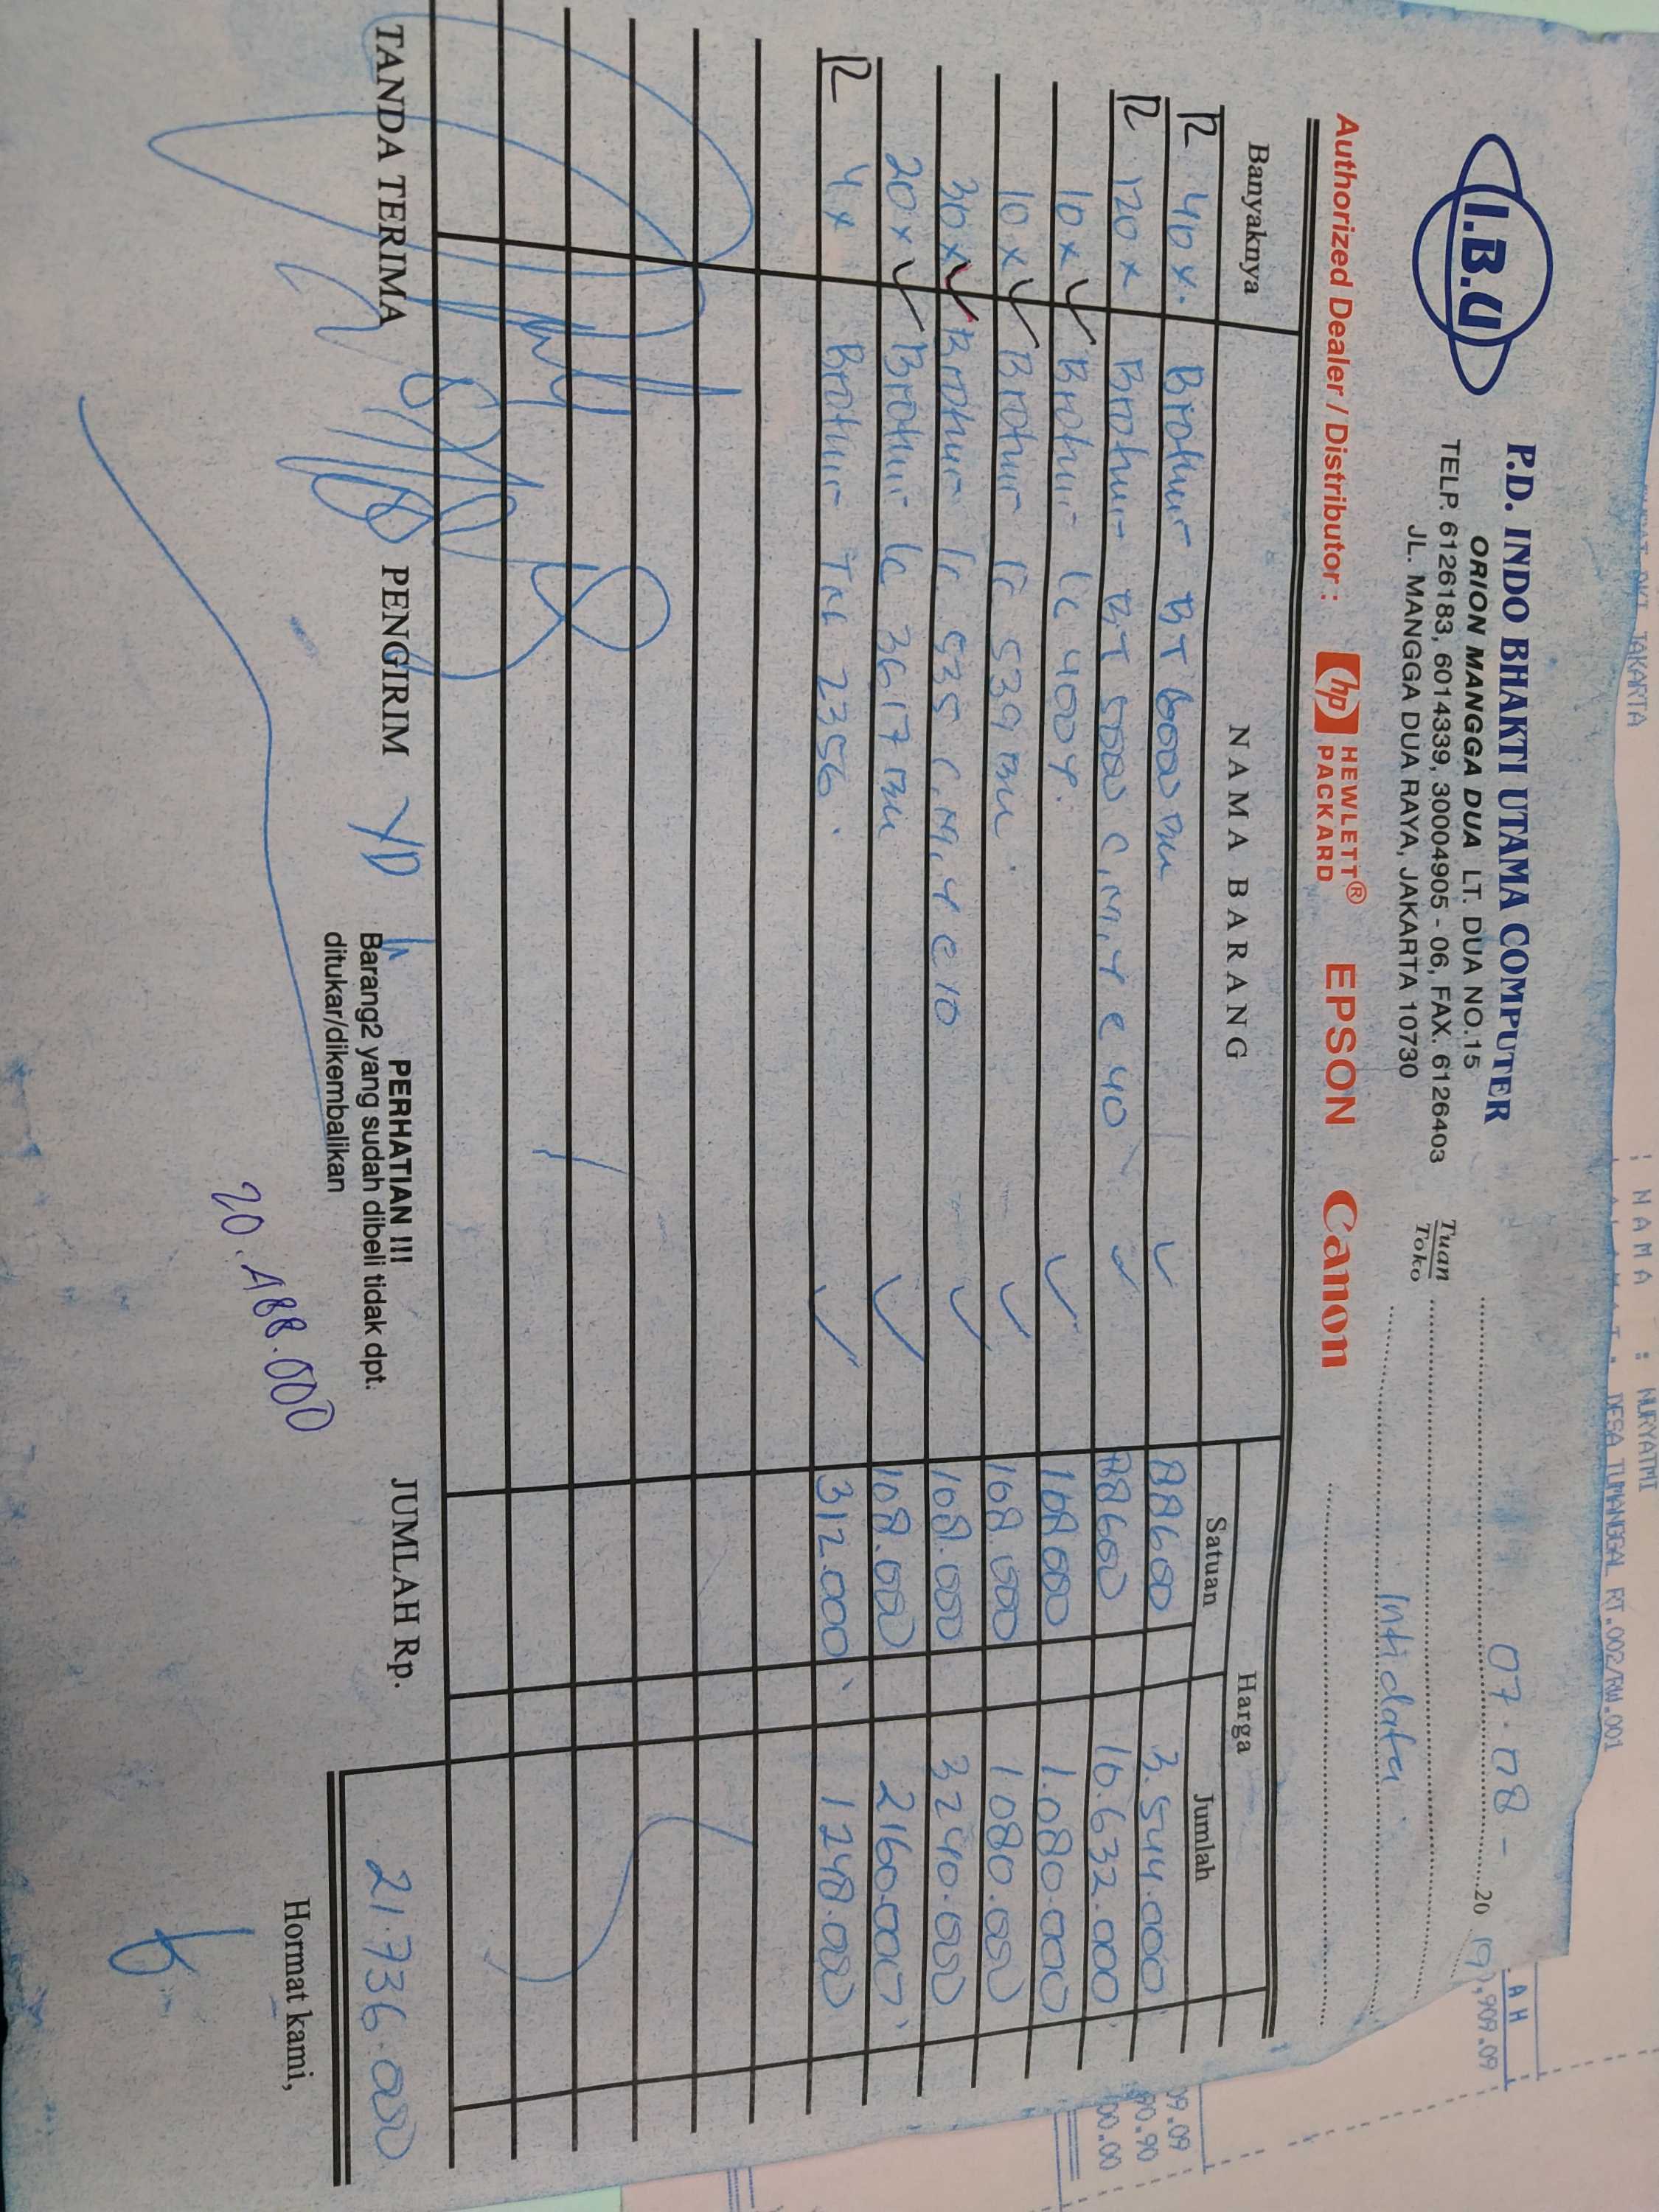 I.B.U
P.D. INDO BHAKTI UTAMA COMPUTER
ORION MANGGA DUA LT. DUA NO.15
TELP. 6126183, 6014339, 30004905 - 06, FAX. 6126403
JL. MANGGA DUA RAYA, JAKARTA 10730
07 - 08 - 20 19
Tuan
Toko
Inti data
Authorized Dealer / Distributor : hp HEWLETT® PACKARD EPSON Canon
Banyaknya NAMA BARANG Harga
Satuan Jumlah
40 x. Brother BT 6000 BK 88600 3.544.000
120 x Brother BT 5000 C, M, Y @ 40 88600 10.632.000
10 x Brother LC 400 Y. 108 000 1.080.000
10 x Brother LC 539 BK. 108.000 1080.000
30 x Brother LC 535 C, M, Y @ 10 108.000 3240.000
20 x Brother LC 3617 BK 108.000 2160.000
4 x Brother TN 2356. 312.000 1248.000
TANDA TERIMA PENGIRIM YD
PERHATIAN !!!
Barang2 yang sudah dibeli tidak dpt.
ditukar/dikembalikan
JUMLAH Rp. 21.736.000
20.488.000
Hormat kami,
JAKARTA
: NAMA : NURYATMI
DESA TUMANGGAL RT.002/RW.001
AH
,909.09
09.09
90.90
00.00